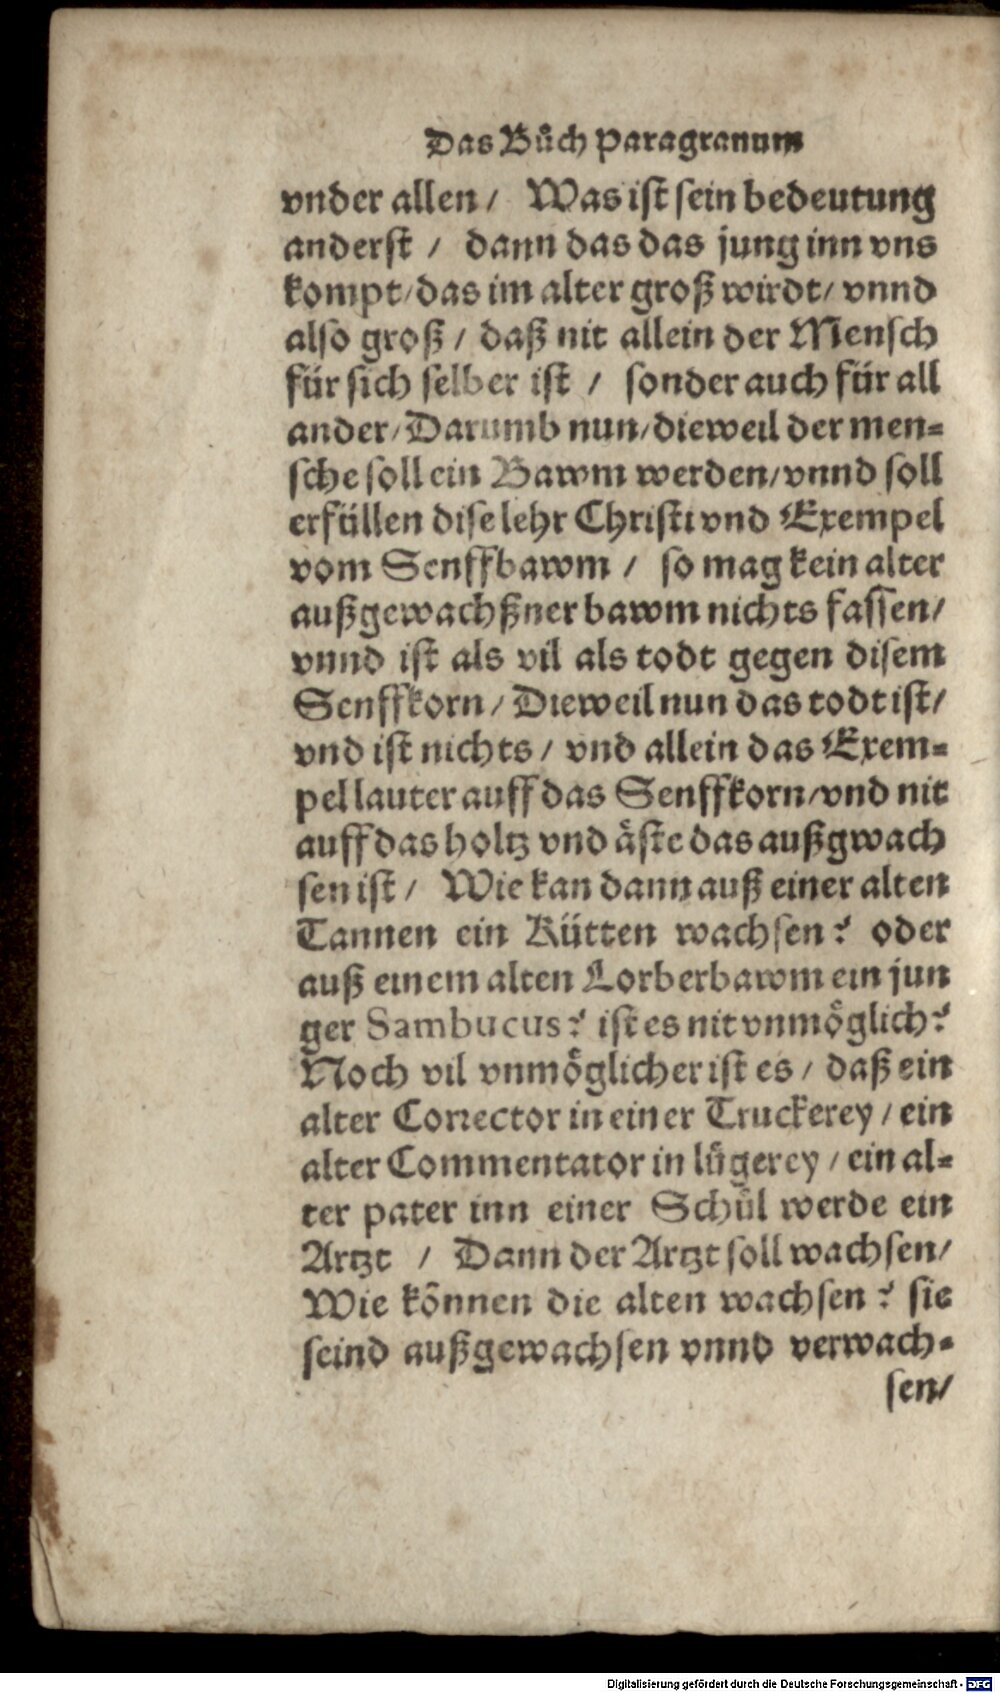 Das Bůch Paragranum
vnder allen / Was ist sein bedeutung
anderst / dann das das jung inn vns
kompt / das im alter groß wirdt / vnnd
also groß / daß nit allein der Mensch
für sich selber ist / sonder auch für all
ander / Darumb nun / dieweil der men-
sche soll ein Bawm werden / vnnd soll
erfüllen dise lehr Christi vnd Exempel
vom Senffbawm / so mag kein alter
außgewachßner bawm nichts fassen /
vnnd ist als vil als todt gegen disem
Senffkorn / Dieweil nun das todt ist /
vnd ist nichts / vnd allein das Exem-
pel lauter auff das Senffkorn / vnd nit
auff das holtz vnd äste das außgwach
sen ist / Wie kan dann auß einer alten
Tannen ein Kütten wachsen? oder
auß einem alten Lorberbawm ein jun
ger Sambucus? ist es nit vnmöglich?
Noch vil vnmöglicher ist es / daß ein
alter Corrector in einer Truckerey / ein
alter Commentator in lügerey / ein al-
ter pater inn einer Schůl werde ein
Artzt / Dann der Artzt soll wachsen /
Wie können die alten wachsen? sie
seind außgewachsen vnnd verwach-
sen /
Digitalisierung gefördert durch die Deutsche Forschungsgemeinschaft - DFG